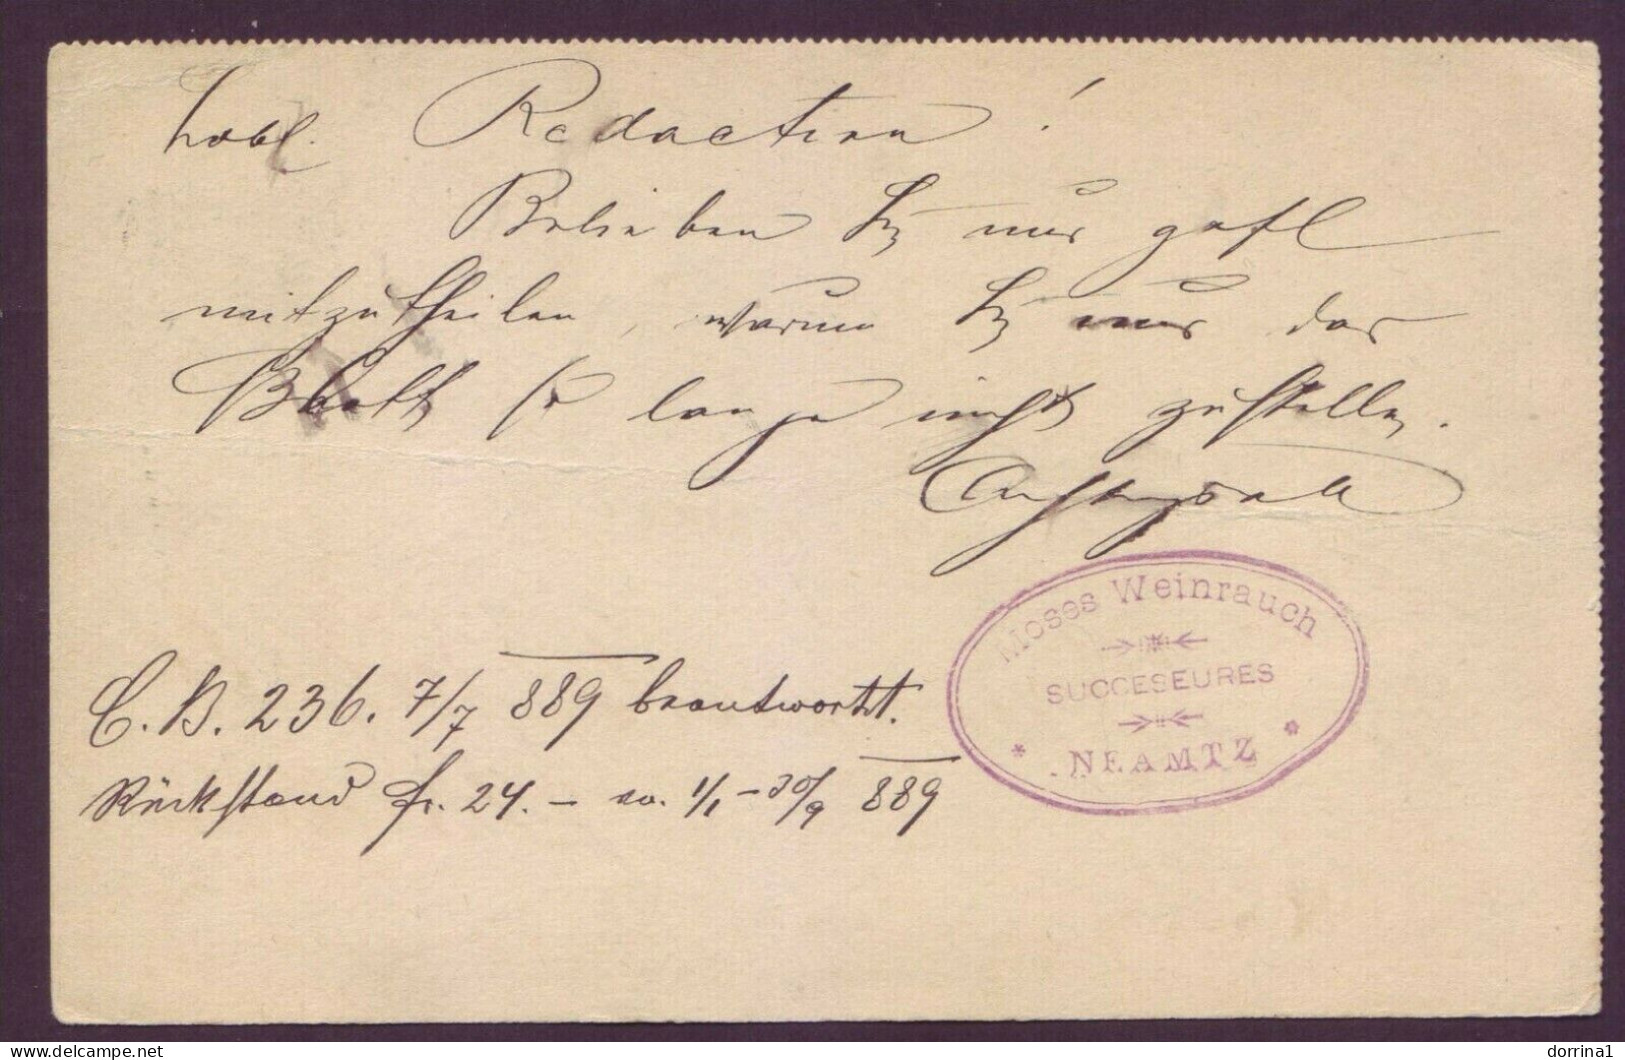 Löbl. Redaction!
Belieben Sie mir gefl
mitzutheilen, warum Sie mir das
Blatt so lange nicht zustellen.
Achtungsvoll
Moses Weinrauch
SUCCESEURES
* NEAMTZ *
C. B. 236. 7/7 889 beantwortet.
Rückstand fr. 24. – ro. 1/1 – 30/9 889
delcampe.net
dorrina1